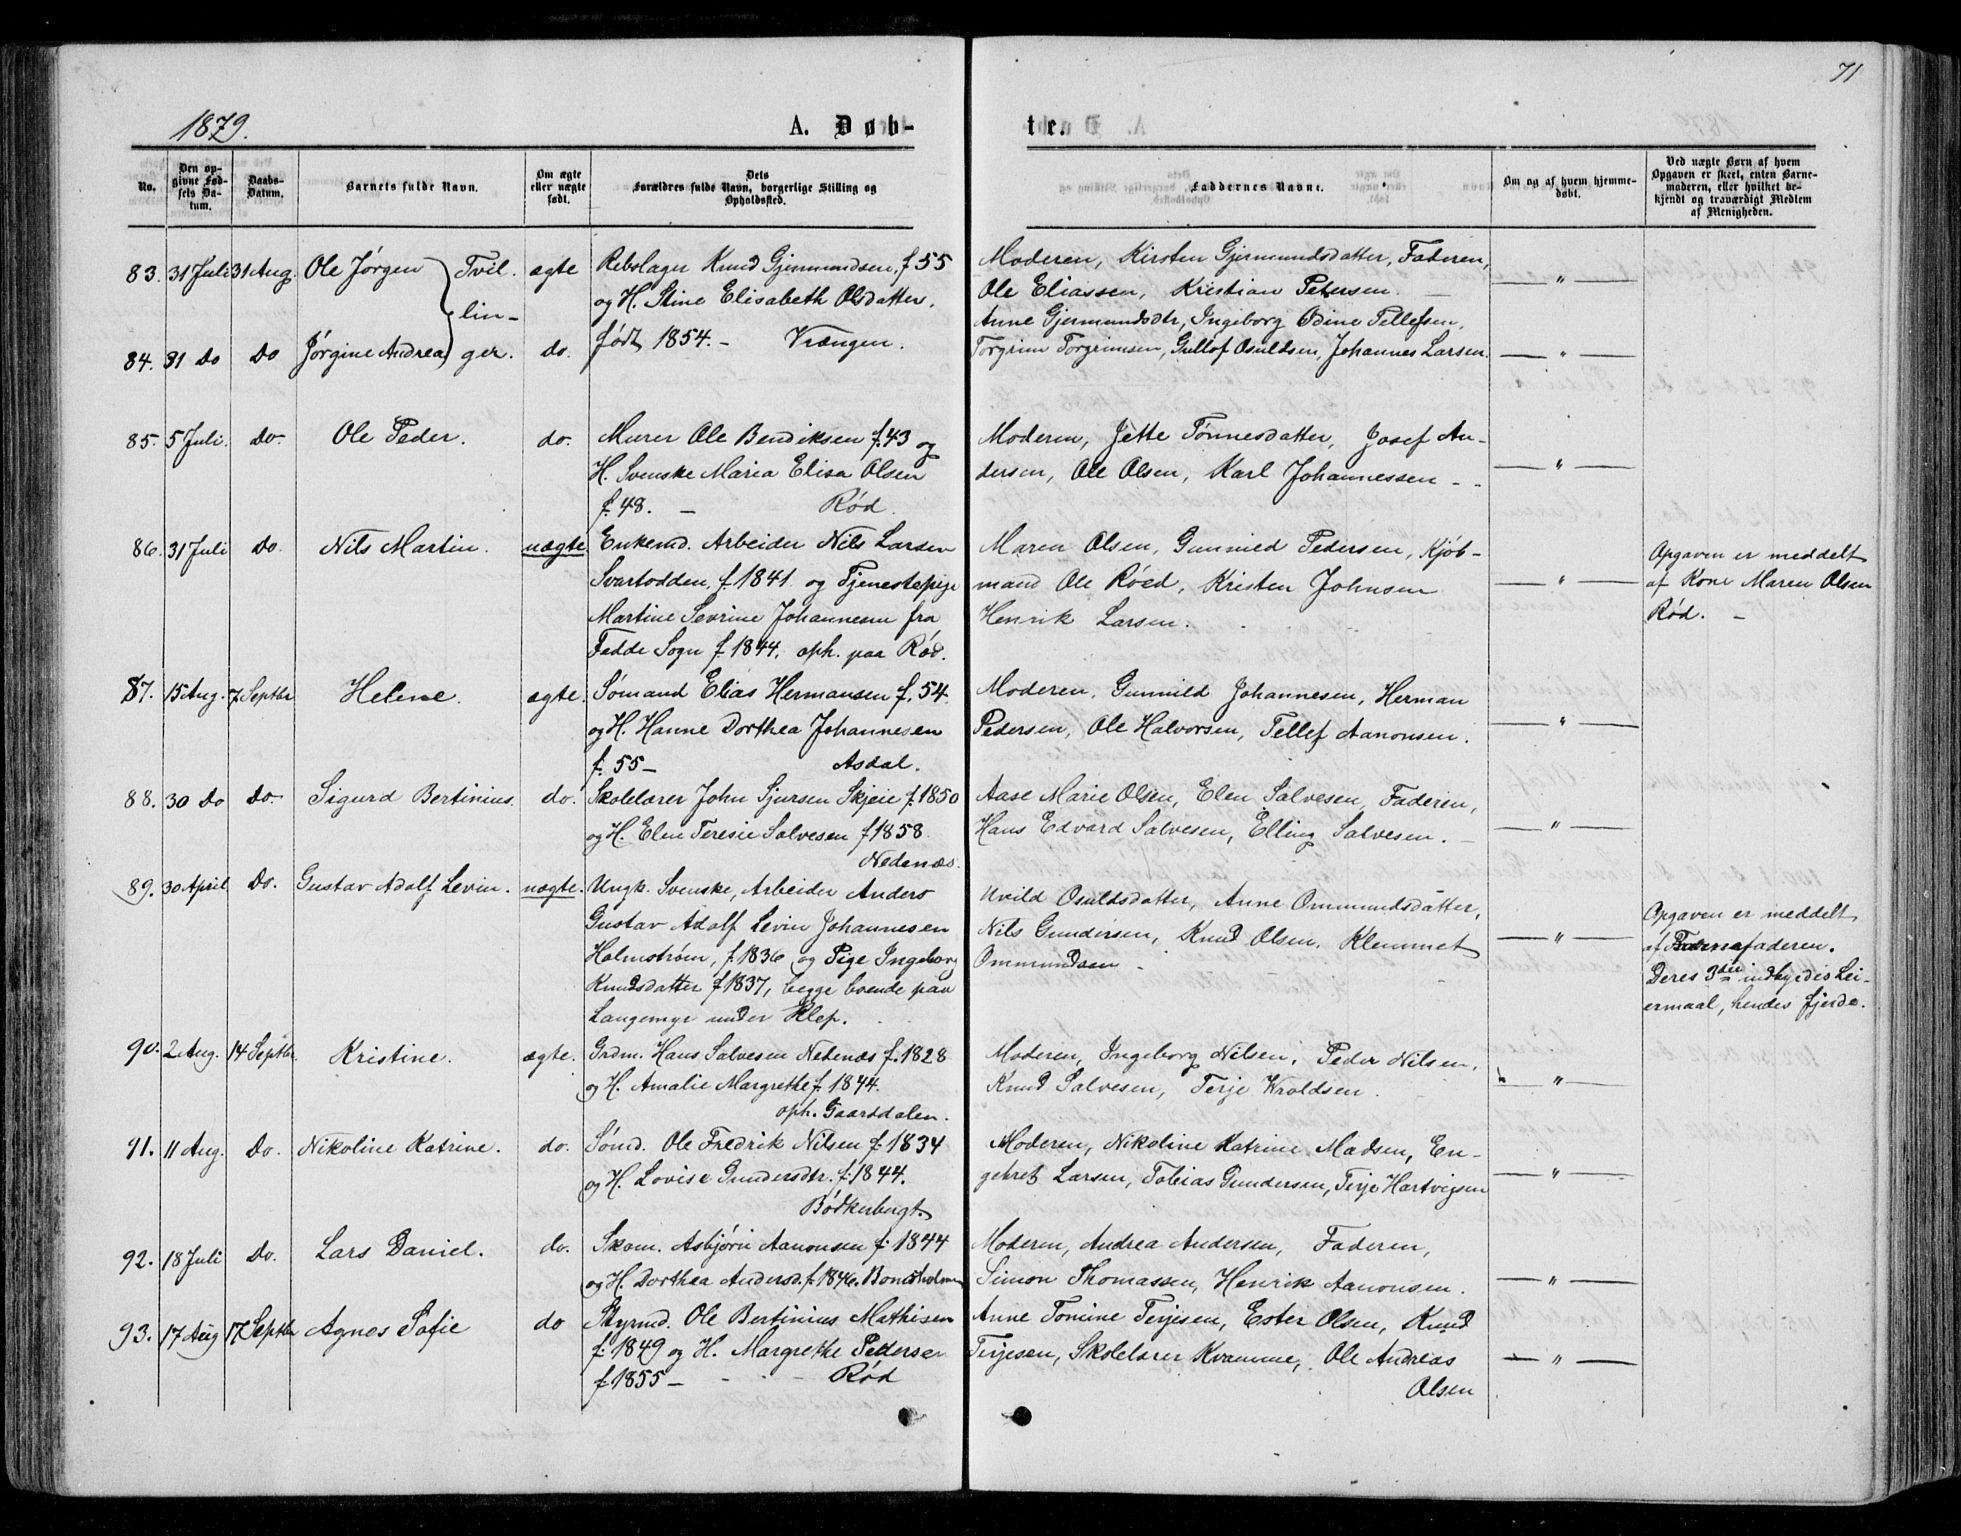 71
1879.
A. Døb-
te.
No.
Den opgivne Fødsels Datum.
Daabs-Datum.
Barnets fulde Navn.
Om ægte eller uægte født.
Dets Forældres fulde Navn, borgerlige Stilling og Opholdssted.
Faddernes Navne.
Om og af hvem hjemmedøbt.
Ved uægte Børn af hvem Opgaven er skeet, enten Barnemoderen, eller hvilket bekjendt og troværdigt Medlem af Menigheden.
83. 31 Juli 31 Aug. Ole Jørgen Tvil- ægte Rebslager Knud Gjermundsen, f 55
og H. Stine Elisabeth Olsdatter,
lin-
84. 31 Do Do Jørgine Andrea ger. do. født 1854. - Vrængen.
Moderen, Kirsten Gjermundsdatter, Faderen,
Ole Eliassen, Kristian Petersen. — " —
Anne Gjermundsdtr, Ingeborg Odine Tellefsen,
Torgrim Torgrimsen, Gullof Osuldsen, Johannes Larsen. — " —
85. 5 Juli. do. Ole Peder. do. Murer Ole Bendiksen f. 43 og
H. Svenske Maria Elisa Olsen
f. 48. — Rød.
Moderen, Jette Tønnesdatter, Josef An-
dersen, Ole Olsen, Karl Johannessen - - — " —
86. 31 Juli do. Nils Martin. uægte Enkemd. Arbeider Nils Larsen
Svartodden, f. 1841. og Tjenestepige
Martine Sevrine Johannesen fra
Fedde Sogn f. 1844. oph. paa Rød.
Maren Olsen, Gunnild Pedersen, Kjøb-
mand Ole Røed, Kristen Johnsen — " —
Henrik Larsen.
Opgaven er meddelt
af Kone Maren Olsen
Rød. —
87. 15 Aug. 7 Septbr Helene. ægte. Sømand Elias Hermansen f. 54.
og H. Hanne Dorthea Johannesen
f. 55 — Asdal.
Moderen, Gunnild Johannesen, Herman
Pedersen, Ole Halvorsen, Tellef Aanonsen. — " —
88. 30 Do Do. Sigurd Bertinius. do. Skolelærer John Sjursen Skjeie f. 1850
og H. Elen Teresie Salvesen f 1858.
Nedenæs.
Aase Marie Olsen, Elen Salvesen, Faderen,
Hans Edvard Salvesen, Elling Salvesen. — " —
89. 30 April. Do. Gustav Adolf Levin. uægte. Ungk. Svenske, Arbeider Anders
Gustav Adolf Levin Johannesen
Holmstrøm, f. 1836 og Pige Ingeborg
Knudsdatter f 1837, begge boende paa
Langemyr under Klep.
Uvild Osuldsdatter, Anne Ommundsdatter,
Nils Gundersen, Knud Olsen, Klemmet — " —
Ommundsen
Opgaven er meddelt
af Barnefaderen.
Deres 3die indbyrdes Lei-
ermaal, hendes fjerde.
90. 2 Aug. 14 Septbr. Kristine. ægte. Grdm. Hans Salvesen Nedenæs f. 1828
og H. Amalie Margrethe f. 1844.
oph. Gaarsdalen.
Moderen, Ingeborg Nilsen, Peder Nilsen,
Knud Salvesen, Terje Wroldsen. — " —
91. 11 Aug. Do. Nikoline Katrine. do. Sømd. Ole Fredrik Nilsen f. 1834
og H. Lovise Gundersdtr. f. 1844.
Bødkerbugt.
Moderen, Nikoline Katrine Madsen, En-
gebret Larsen, Tobias Gundersen, Terje Hartvigsen — " —
92. 18 Juli Do. Lars Daniel. do. Skom. Asbjørn Aanonsen f. 1844
og H. Dorthea Andersd. f. 1846.
Moderen, Andrea Andersen, Faderen,
Simon Thomassen, Henrik Aanonsen. — " —
93. 17 Aug 17 Septbr Agnes Sofie do Styrmd. Ole Bertinius Mathisen
f. 1849 og H. Margrethe Pedersen
f. 1855 — Rød
Anne Tomine Terjesen, Ester Olsen, Knud
Terjesen, Skolelærer Kvamme, Ole Andreas — " —
Olsen